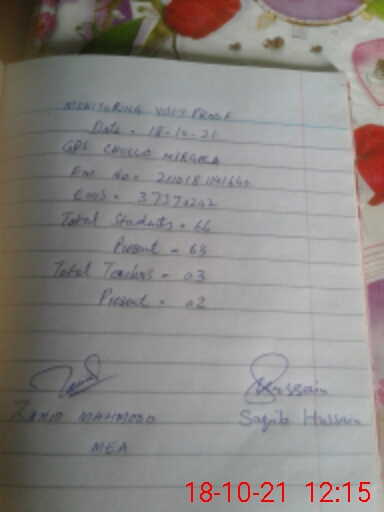 MONITORING VISIT PROOF
Date = 18-10-21
GPS CHOLLO MIRGKA
EM No =
Emis = 37370202
Total Students = 66
Present = 63
Total Teachers = 03
Present = 02
Hussain
ZAHID MAHMOOD
Saqib Hussain
MEA
18-10-21 12:15